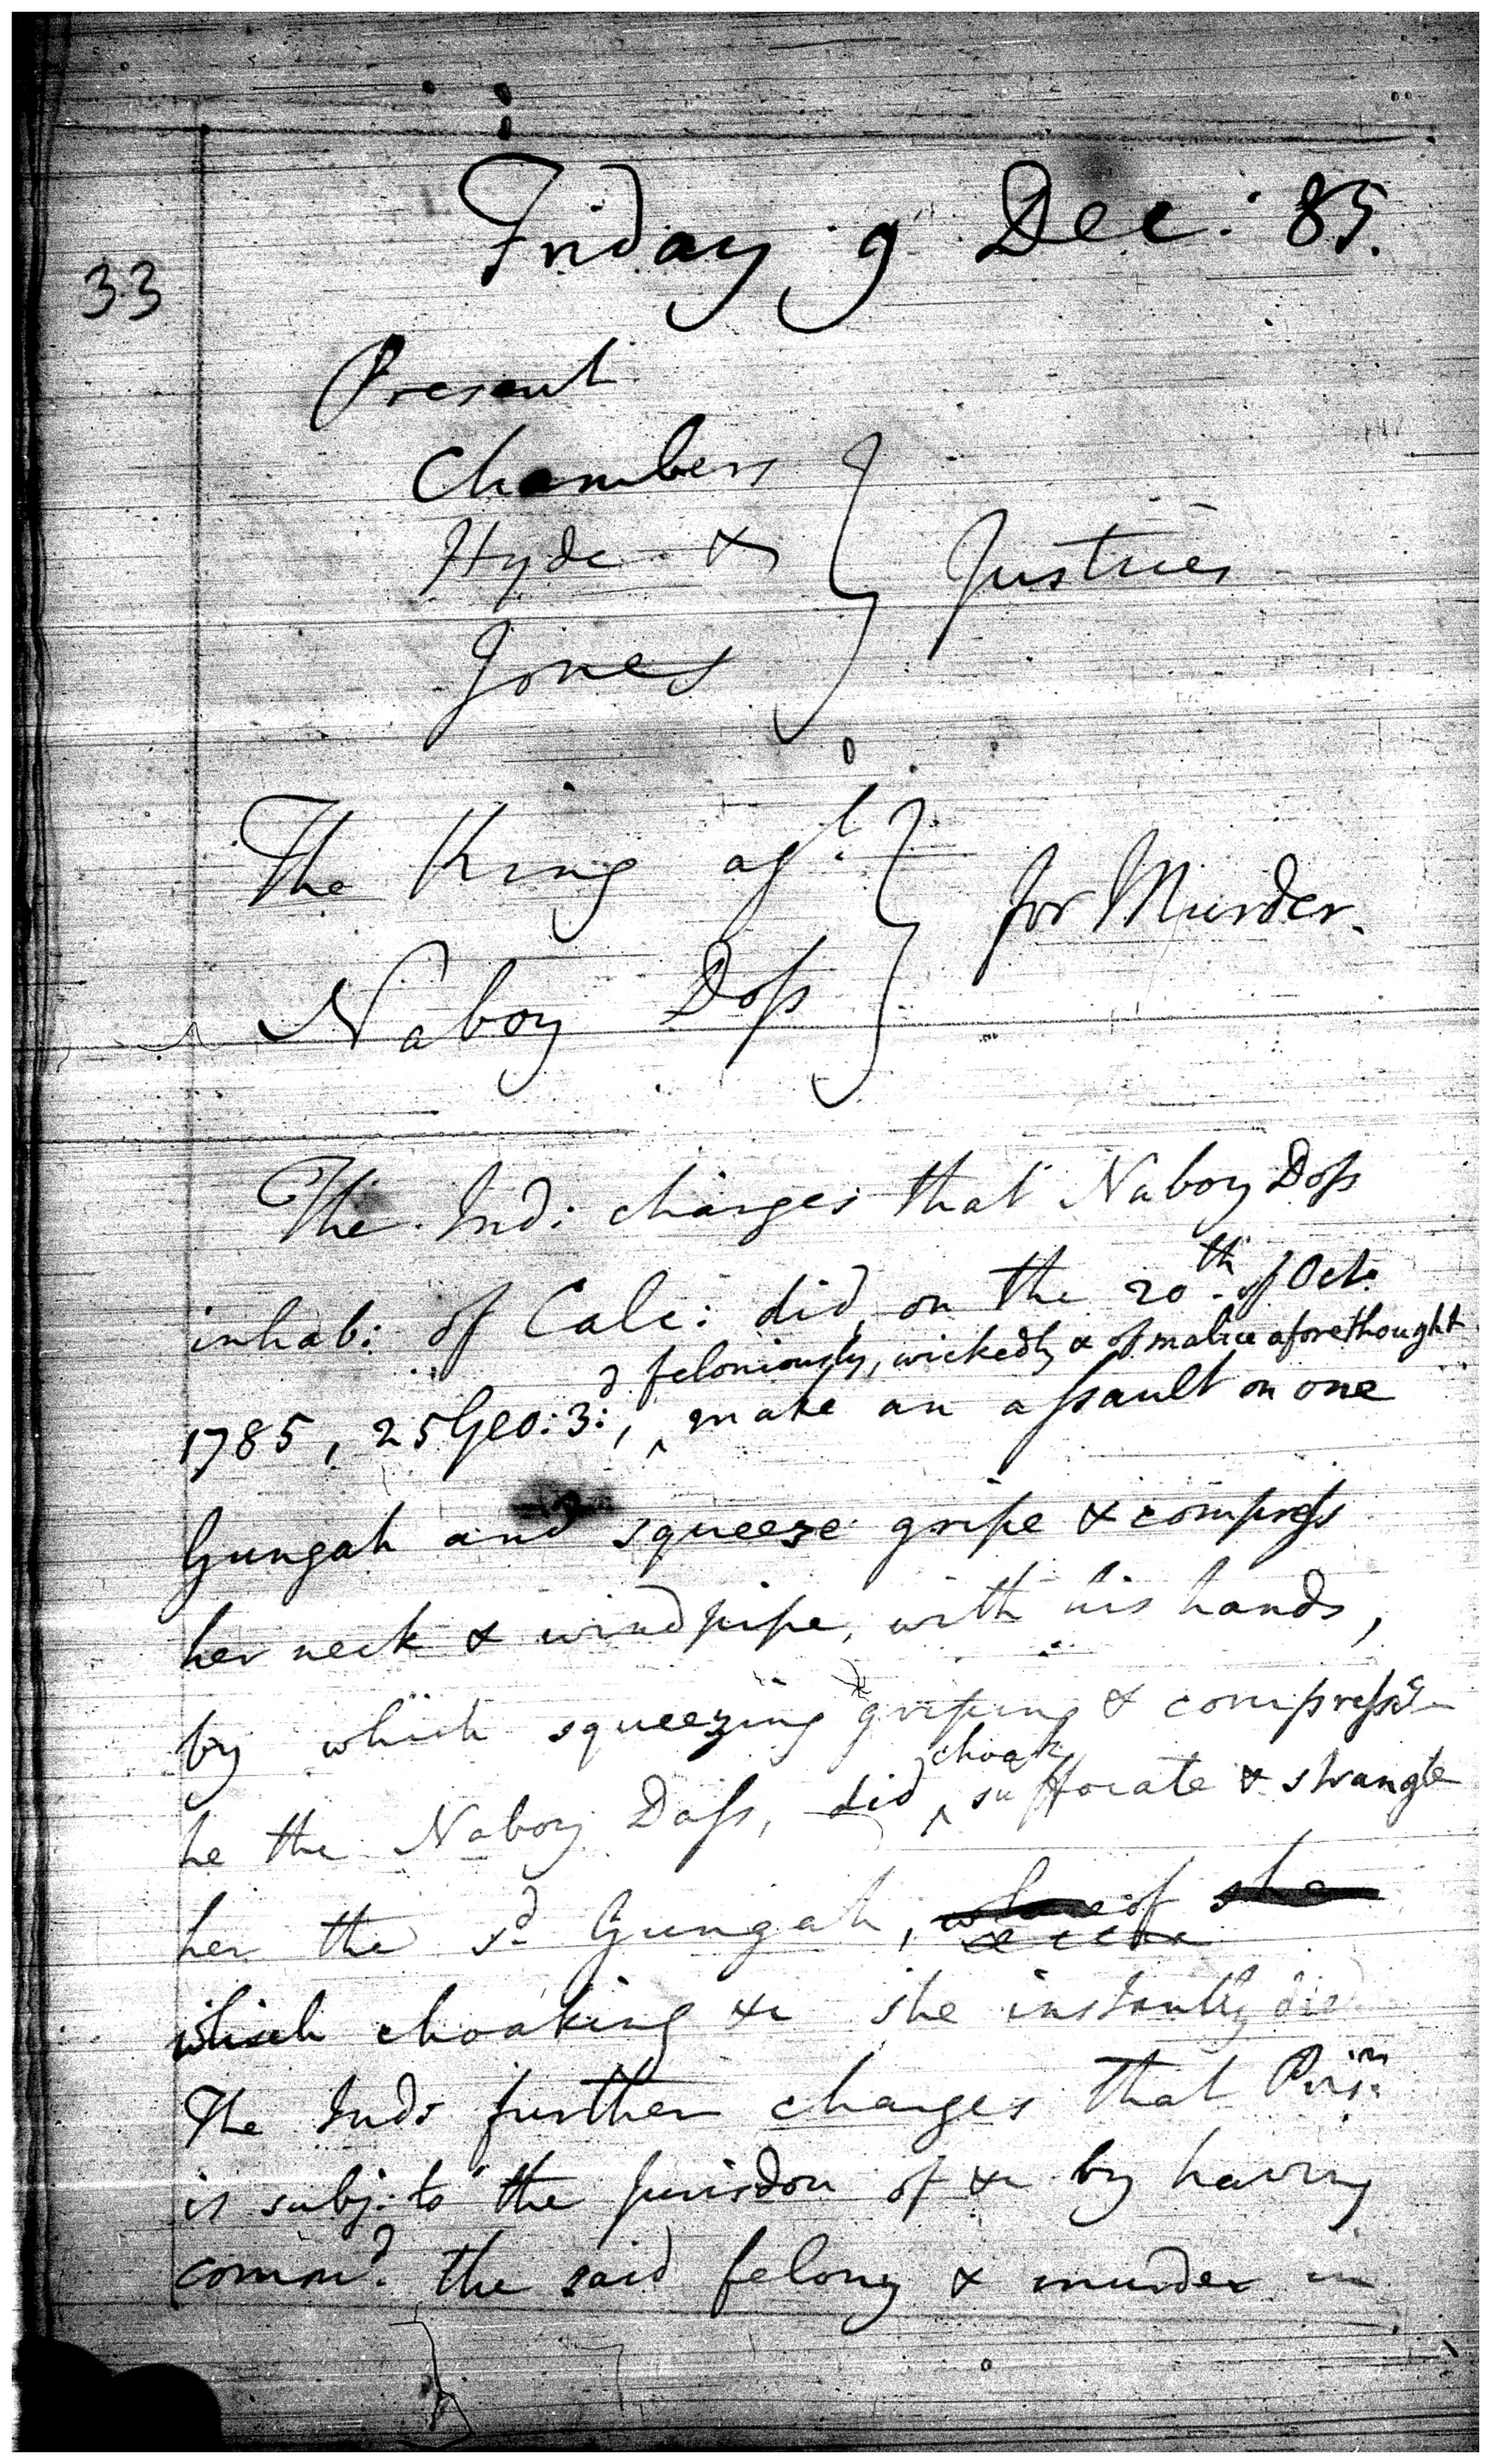 Friday 9 Dec: 85.
33
Present
Chambers
Hyde &
Jones
Justices
The King agt.
Naboy Doss
for Murder.
The Ind: charges that Naboy Doss
inhab: of Calc: did, on the 20th. of Oct:
feloniously, wickedly & of malice aforethought
1785, 25 Geo: 3:d, ^ make an assault on one
Gungah and squeeze gripe & compress
her neck & windpipe, with his hands,
by which squeezing griping & compress
choak,
he the Naboy Doss, did ^ suffocate & strangle
her the sd Gungah, whereof she
which choaking &c she instantly died
The Ind: further charges that Prisr.
is subj: to the jurisdon of &c by having
commd. the said felony & murder in